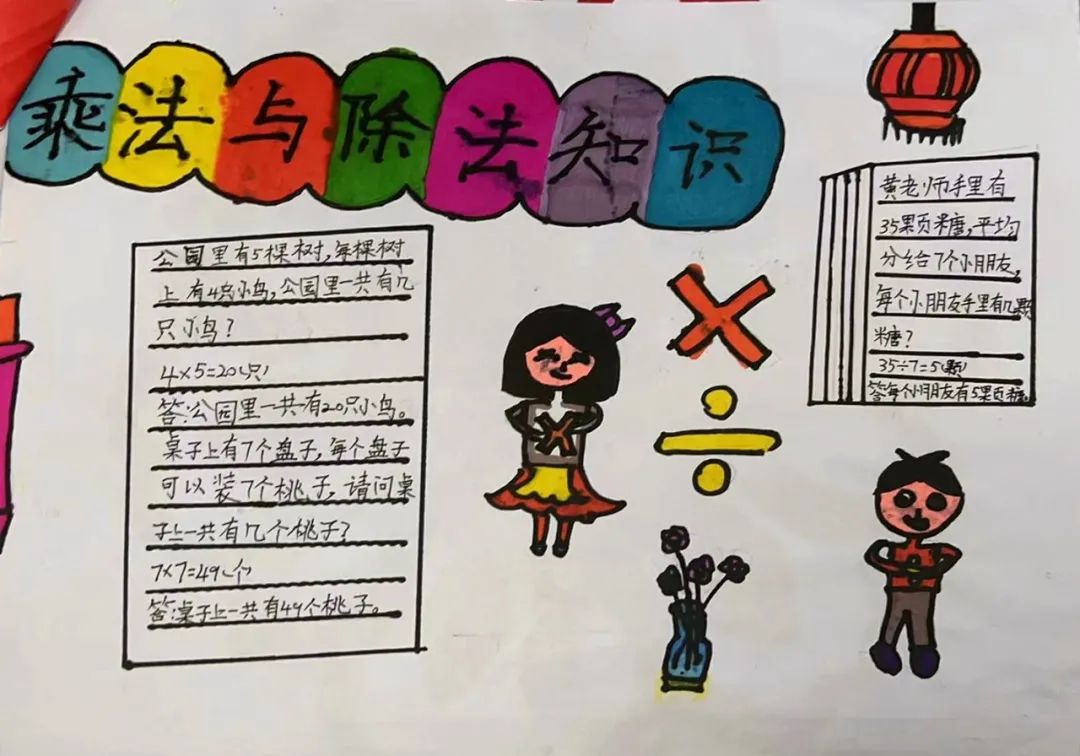 乘法与除法知识
公园里有5棵树,每棵树
上有4只小鸟,公园里一共有几
只小鸟?
4×5=20(只)
答:公园里一共有20只小鸟。
桌子上有7个盘子,每个盘子
可以装7个桃子,请问桌
子上一共有几个桃子?
7×7=49(个)
答:桌子上一共有49个桃子。
黄老师手里有
35颗糖,平均
分给7个小朋友,
每个小朋友手里有几颗
糖?
35÷7=5(颗)
答每个小朋友有5颗糖。
×
÷